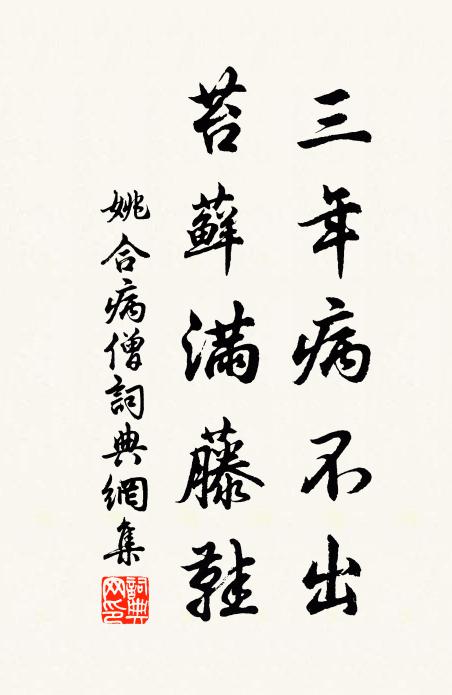 三年病不出
苔蘚滿藤鞋
姚合病僧詞典網集
詞典網印